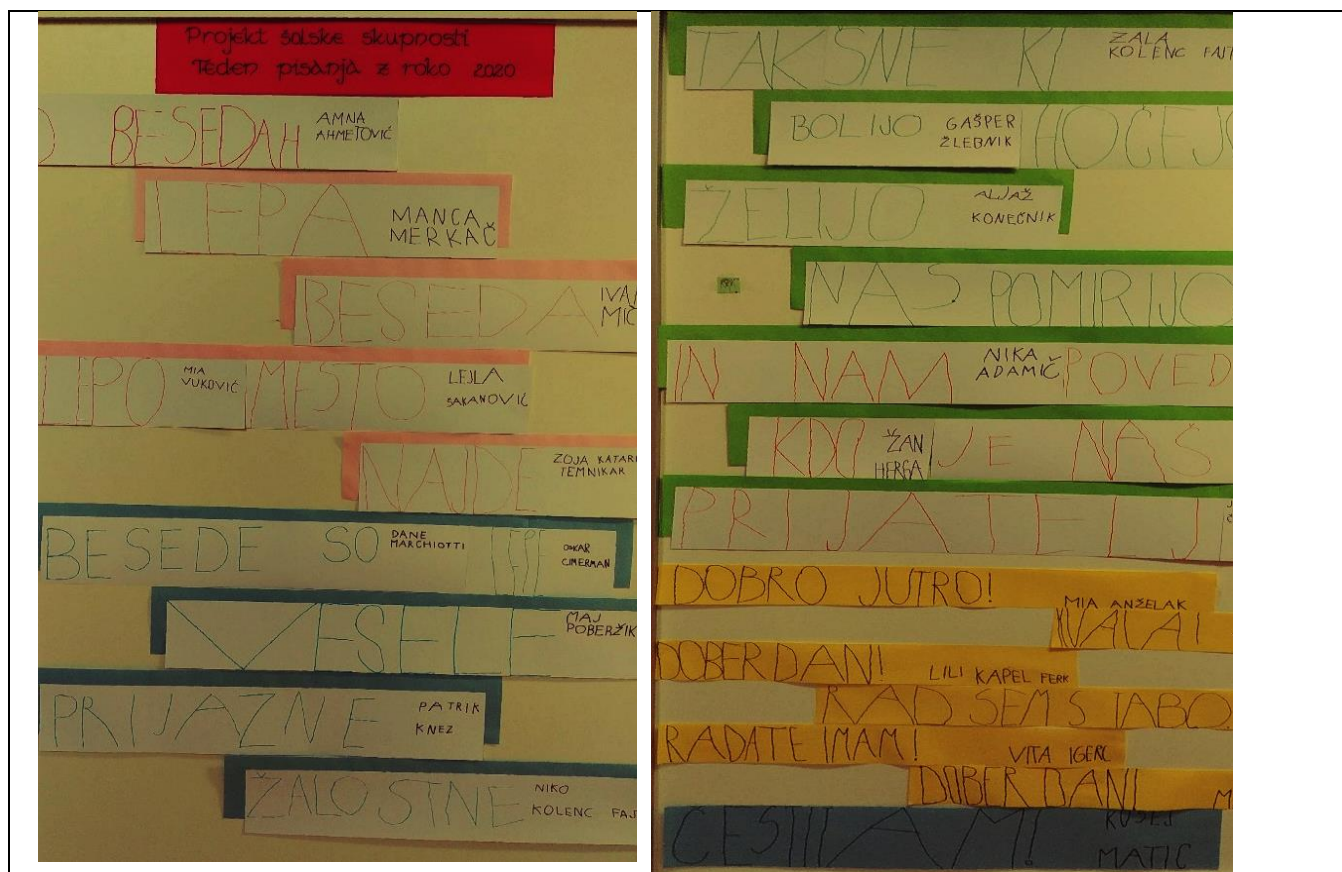 Projekt šolske skupnosti
Teden pisanja z roko 2020
O BESEDAH AMNA AHMETOVIĆ
LEPA MANCA MERKAČ
BESEDA
LEPO MIA VUKOVIĆ MESTO LEJLA SAKANOVIĆ
NAJDE ZOJA TEMNIKAR
BESEDE SO DANE MARCHIOTTI LEPE CIMERMAN
VESELE MAJ POBERŽNIK
PRIJAZNE PATRIK KNEZ
ŽALOSTNE NIKO KOLENC
TAKŠNE KI ZALA KOLENC
BOLIJO GAŠPER ŽLEBNIK
ŽELIJO ALJAŽ KONEČNIK
NAS POMIRIJO
IN NAM NIKA ADAMIČ
KDO ŽAN HERGA JE NAŠ
PRIJATELJ
DOBRO JUTRO! MIA ANŽELAK
HVALA!
DOBER DAN! LILI KAPEL FERK
RAD SEM S TABO
RADA TE IMAM! VITA IGERC
DOBER DAN!
ČESTITAM! MATIC